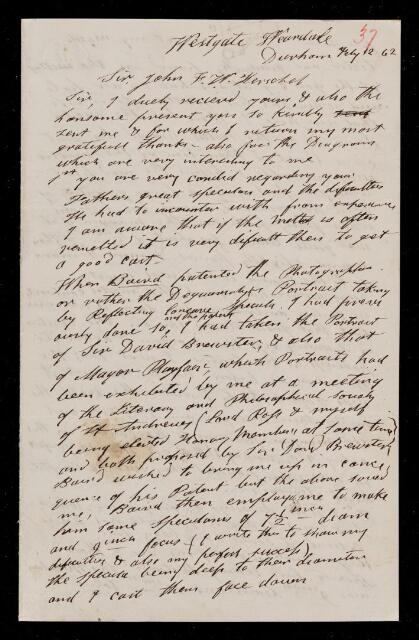 37
Westgate Weardale
Durham Feby 12 62
Sir John F. W. Herschel
Sir, I duely recieved yours & also the
hansome present you so kindly
sent me & for which I return my most
gratefull thanks - also for the Diagrams
which are very interesting to me
you are very candid regarding your
Fathers great speculum and the difficulties
He had to incounter with from experience
I am awane that if the Mettel is often
remelted it is very dificult then to get
a good cast.
When Baird patented the Photographic
or rither the Deguarrotype Portrait taking
by Reflecting Concave Specula, I had previ
ously done so, I had taken the Portrait
of Sir David Brewster, & also that
of Mayor Playfair, which Portraits had
been exhibited by me at a meeting
of the Literary and Philosophical society
of St Andrews (Lord Ross & myself
being elected Honary Members at same time
and both proposed by Sir David Brewster)
Baird wished to bring me up in conse
quence of his Patent but the above saved
me, Baird then employed me to make
him some speculums of 7½ inch diam
and 9 inch focus (I write this to shaw my
dificulties & also my perfect success)
the specula being deep to their diameter
and I cast them face down